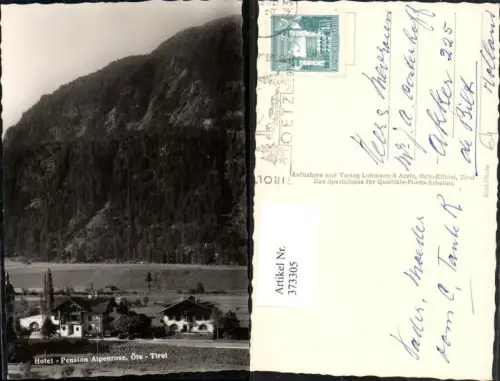 Hotel - Pension Alpenrose, Ötz - Tirol
OETZ
TIROL
Aufnahme und Verlag Lohmann & Aretz, Oetz-Kühtai, Tirol
Das Spezialhaus für Qualitäts-Photo-Arbeiten
Echt Photo
Artikel Nr.
373305
Heer Mevrouw
Akker 225
de Bilt
Holland
Vader, Moeder
Tante R